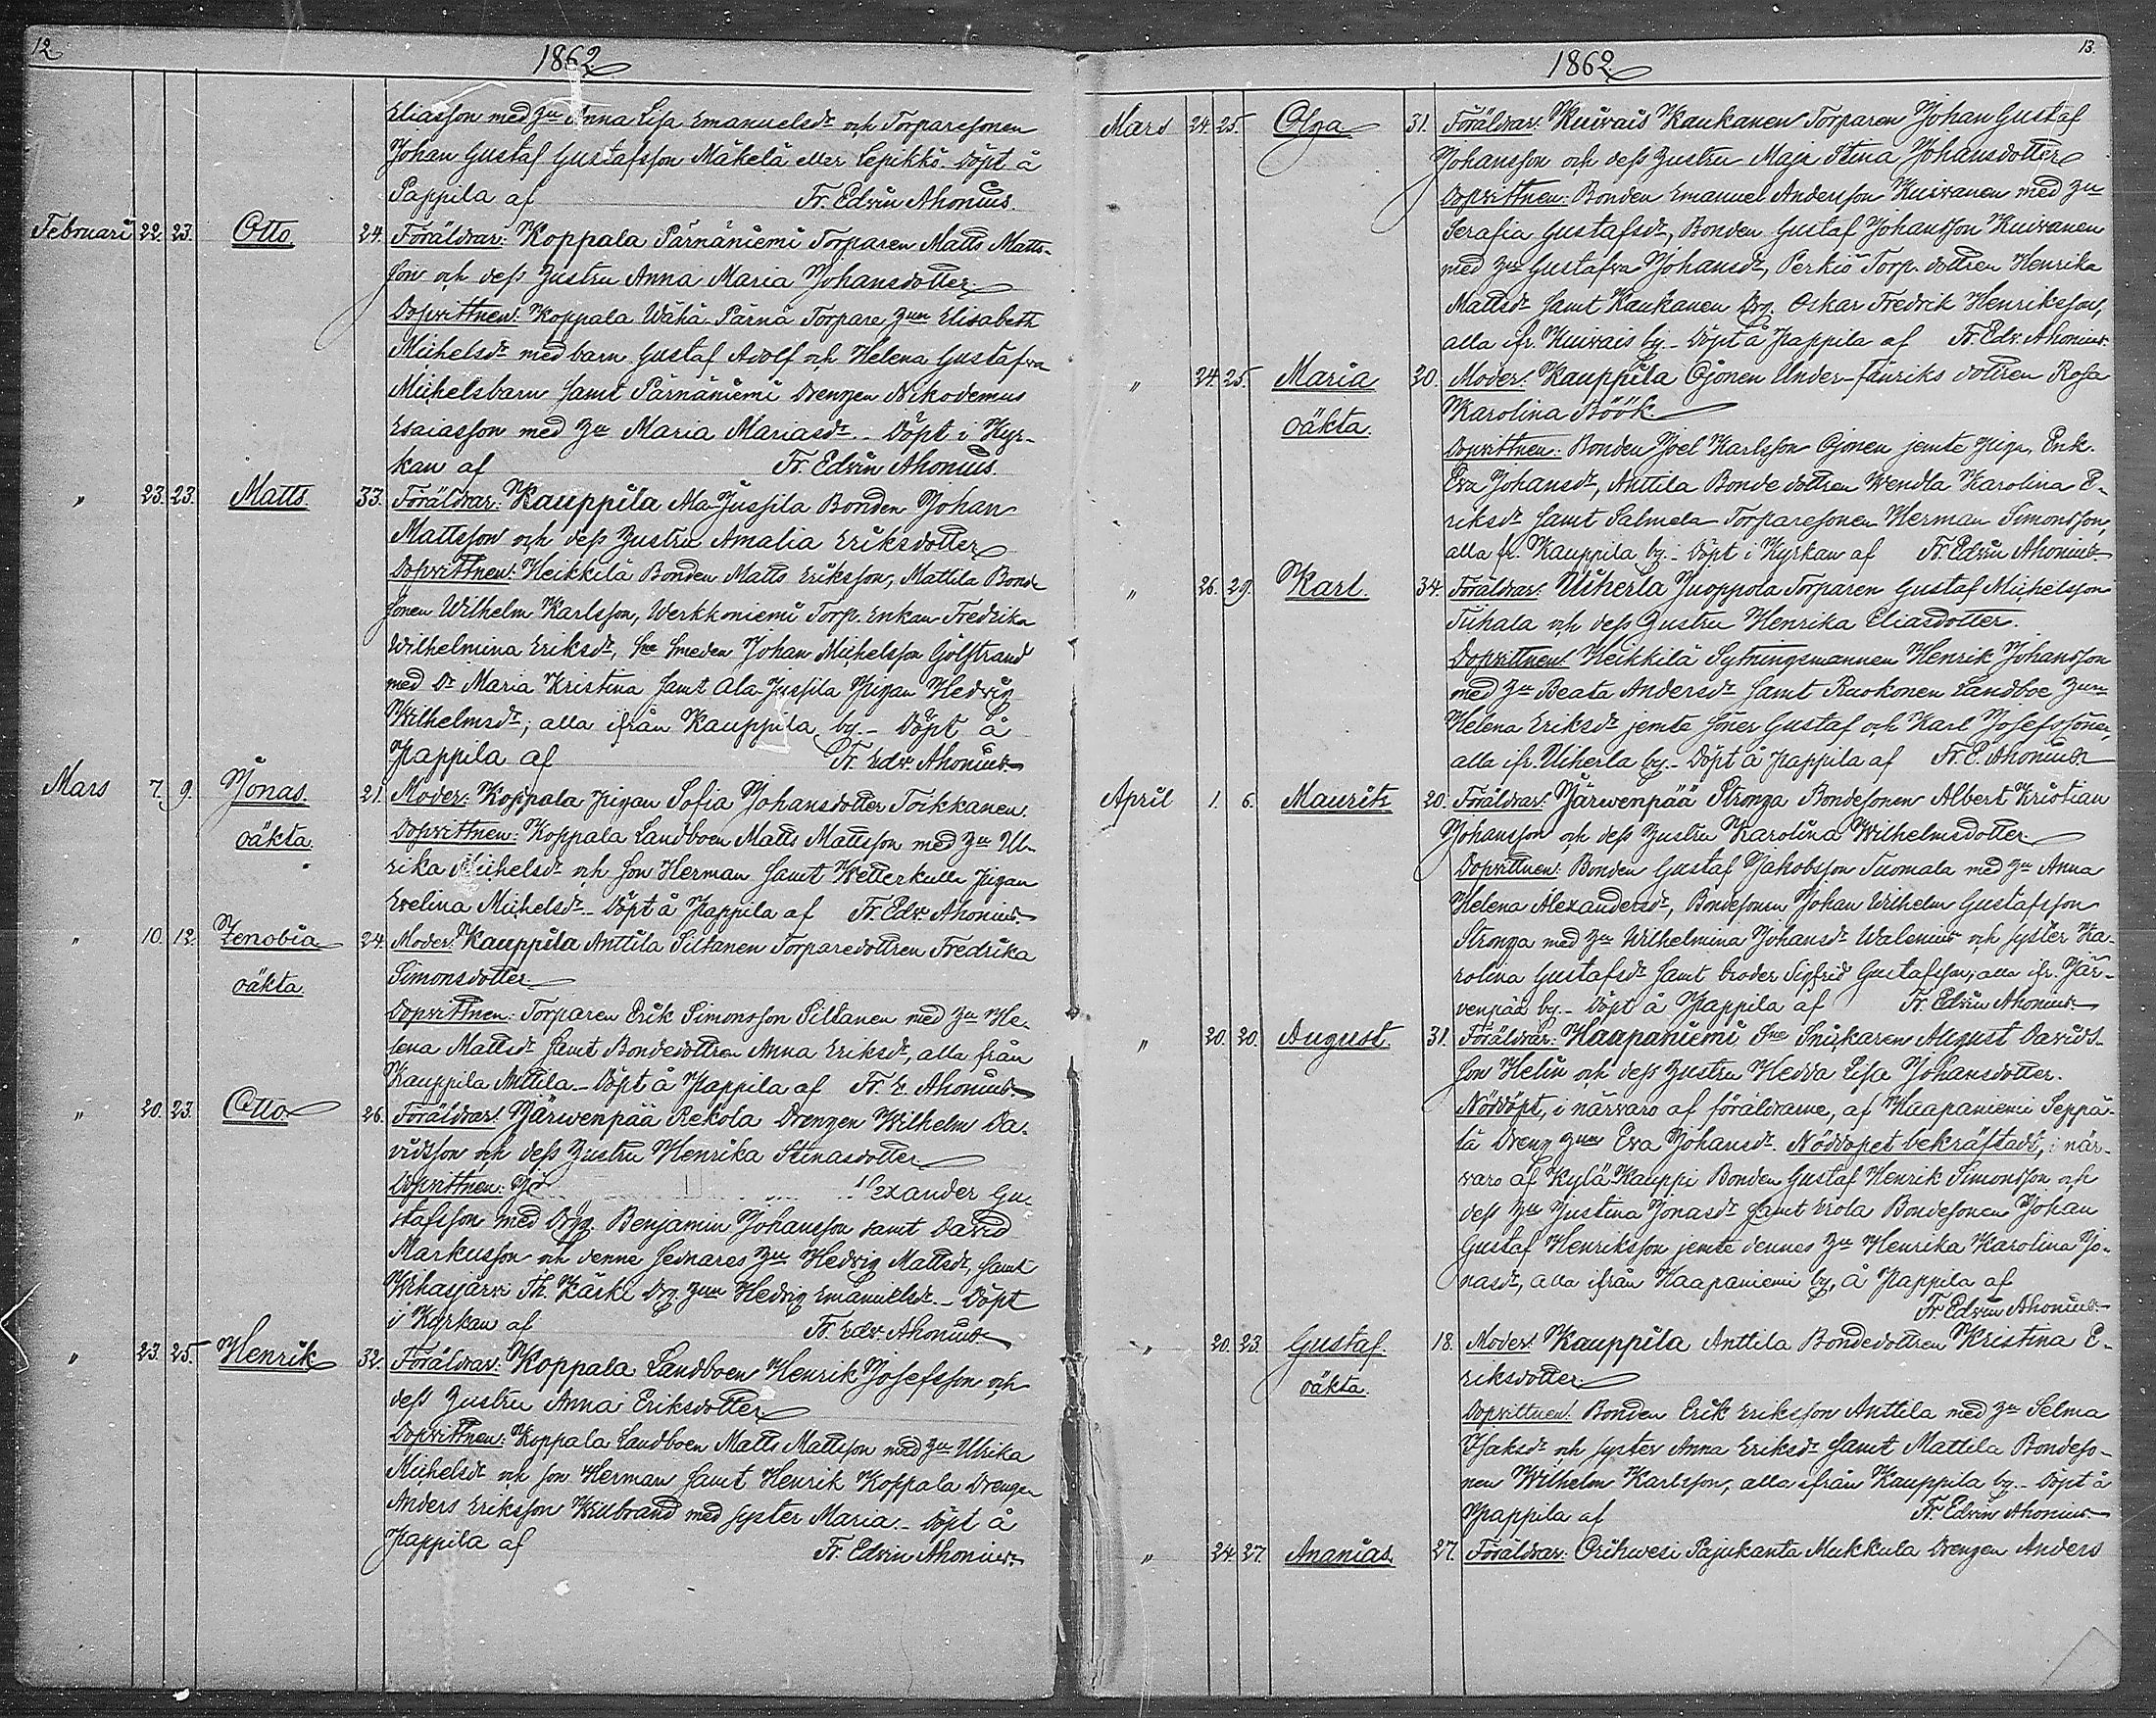 12.
1862.
Eliasson med hu Anna Lisa Emanuelsdr och Torparesonen
Johan Gustaf Gustafsson Mäkelä eller Lepikkö. Döpt å
Pappila af Fr. Edvin Ahonius.
Februari 22. 23. Otto. 24. Föräldrar: Koppala Pärnäniemi Torparen Matts Matts-
son och dess hustru Anna Maria Johansdotter.
Dopvittnen: Koppala Wähä-Pärnä Torpare hun Elisabeth
Michelsdr med barn Gustaf Adolf och Helena Gustafva
Michelsbarn samt Pärnäniemi Drengen Nikodemus
Esaiasson med hu Maria Mariasdr. Döpt i Kyr-
kan af Fr. Edvin Ahonius.
" 23. 23. Matts. 33. Föräldrar: Kauppila Ala-Jussila Bonden Johan
Mattsson och dess hustru Amalia Eriksdotter
Dopvittnen: Heikkilä Bonden Matts Eriksson, Mattila Bonde
sonen Wilhelm Karlsson, Werkkoniemi Torp. Enkan Fredrika
Wilhelmina Eriksdr, Sne Smeden Johan Michelsson Golfstrand
med Dr Maria Kristina samt Ala-Jussila Pigan Hedvig
Wilhelmsdr; alla ifrån Kauppila by. Döpt å
Pappila af Fr. Edv. Ahonius.
Mars 7. 9. Jonas. 21. Moder: Koppala Pigan Sofia Johansdotter Toikkanen.
oäkta. Dopvittnen: Koppala Landboen Matts Mattsson med hu Ul-
rika Michelsdr och son Herman samt Wetterkulla Pigan
Evelina Michelsdr. Döpt å Pappila af Fr. Edv. Ahonius.
" 10. 12. Zenobia 24. Moder: Kauppila Anttila Siltanen Torparedottren Fredrika
oäkta. Simonsdotter
Dopvittnen: Torparen Erik Simonsson Siltanen med hu He-
lena Mattsdr samt Bondedottren Anna Eriksdr, alla från
Kauppila Anttila. Döpt å Pappila af Fr. E. Ahonius.
" 20. 23. Otto. 26. Föräldrar: Järwenpää Rekola Drengen Wilhelm Da-
vidsson och dess hustru Henrika Stinasdotter
Dopvittnen: exander Gu-
stafsson med Drg. Benjamin Johansson samt David
Markusson och denne sednares hu Hedvig Mattsdr, samt
Wihasjärvi Th. Käski Drg. hun Hedvig Emanuelsdr. Döpt
i Kyrkan af Fr. Edv. Ahonius.
" 23. 25. Henrik 32. Föräldrar: Koppala Landboen Henrik Josefsson och
dess hustru Anna Eriksdotter
Dopvittnen: Koppala Landboen Matts Mattsson med hu Ulrika
Michelsdr och son Herman samt Henrik Koppala Drengen
Anders Eriksson Willbrand med syster Maria. Döpt å
Pappila af Fr. Edvin Ahonius.
13.
1862.
Mars 24. 25. Olga 31. Föräldrar: Kuivais Kaukanen Torparen Johan Gustaf
Johansson och dess hustru Maja Stina Johansdotter
Dopvittnen: Bonden Emanuel Andersson Kuivanen med hu
Serafia Gustafsdr, Bonden Gustaf Johansson Kuivanen
med hu Gustafva Johansdr, Perkiö Torp. dottren Henrika
Mattsdr samt Kaukanen Drg. Oskar Fredrik Henriksson,
alla ifr. Kuivais by. Döpt å Pappila af Fr. Edv. Ahonius.
" 24. 25. Maria 20. Moder: Kauppila Ojonen Under-fänriks dottren Rosa
oäkta. Karolina Böök.
Dopvittnen: Bonden Joel Karlsson Ojonen jemte Piga, Enk.
Eva Johansdr, Anttila Bondedottren Wendla Karolina E-
riksdr samt Salmela Torparesonen Herman Simonsson,
alla fr. Kauppila by. Döpt i Kyrkan af Fr. Edvin Ahonius.
" 26. 29. Karl. 34. Föräldrar: Uiherla Juoppola Torparen Gustaf Michelsson
Tuhala och dess hustru Henrika Eliasdotter.
Dopvittnen: Heikkilä Sytningsmannen Henrik Johansson
med hu Beata Andersdr samt Ruokonen Landboe hun
Helena Eriksdr jemte söner Gustaf och Karl Josefssöner,
alla ifr. Uiherla by. Döpt å Pappila af Fr. E. Ahonius.
April 1. 6. Maurits 20. Föräldrar: Järwenpää Stronga Bondesonen Albert Kristian
Johansson och dess hustru Karolina Wilhelmsdotter
Dopvittnen: Bonden Gustaf Jakobsson Tuomala med hu Anna
Helena Alexandersdr, Bondesonen Johan Wilhelm Gustafsson
Stronga med hu Wilhelmina Johansdr Walenius och syster Ka-
rolina Gustafsdr samt broder Sigfrid Gustafsson, alla ifr. Jär-
venpää by. Döpt å Pappila af Fr. Edvin Ahonius.
" 20. 20. August. 31. Föräldrar: Haapaniemi Sne Snikaren August Davids-
son Helin och dess hustru Hedda Lisa Johansdotter.
Nöddöpt, i närvaro af föräldrarne, af Haapaniemi Seppä-
lä Dreng hun Eva Johansdr. Nöddopet bekräftadt, i när-
varo af Kylä-Kauppi Bonden Gustaf Henrik Simonsson och
dess hu Justina Jonasdr samt Erola Bondesonen Johan
Gustaf Henriksson jemte dennes hu Henrika Karolina Jo-
nasdr, alla ifrån Haapaniemi by, å Pappila af
Fr. Edvin Ahonius.
" 20. 23. Gustaf. 18. Moder: Kauppila Anttila Bondedottren Kristina E-
oäkta. riksdotter.
Dopvittnen: Bonden Erik Eriksson Anttila med hu Selma
Isaksdr och syster Anna Eriksdr samt Mattila Bondeso-
nen Wilhelm Karlsson, alla ifrån Kauppila by. Döpt å
Pappila af Fr. Edvin Ahonius.
" 24. 27. Ananias. 27. Föräldrar: Orihwesi Pajukanta Mukkula Drengen Anders